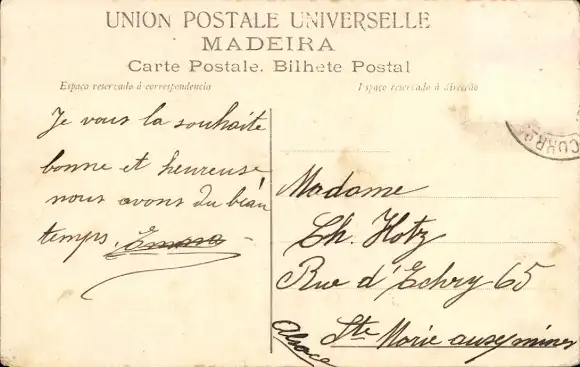 UNION POSTALE UNIVERSELLE
MADEIRA
Carte Postale. Bilhete Postal
Espaço reservado á correspondencia
Espaço reservado á direcção
Je vous la souhaite
bonne et heureuse,
nous avons du beau
temps.
Madame
Ch. Hotz
Rue d'Echry 65
Ste Marie aux mines
Alsace